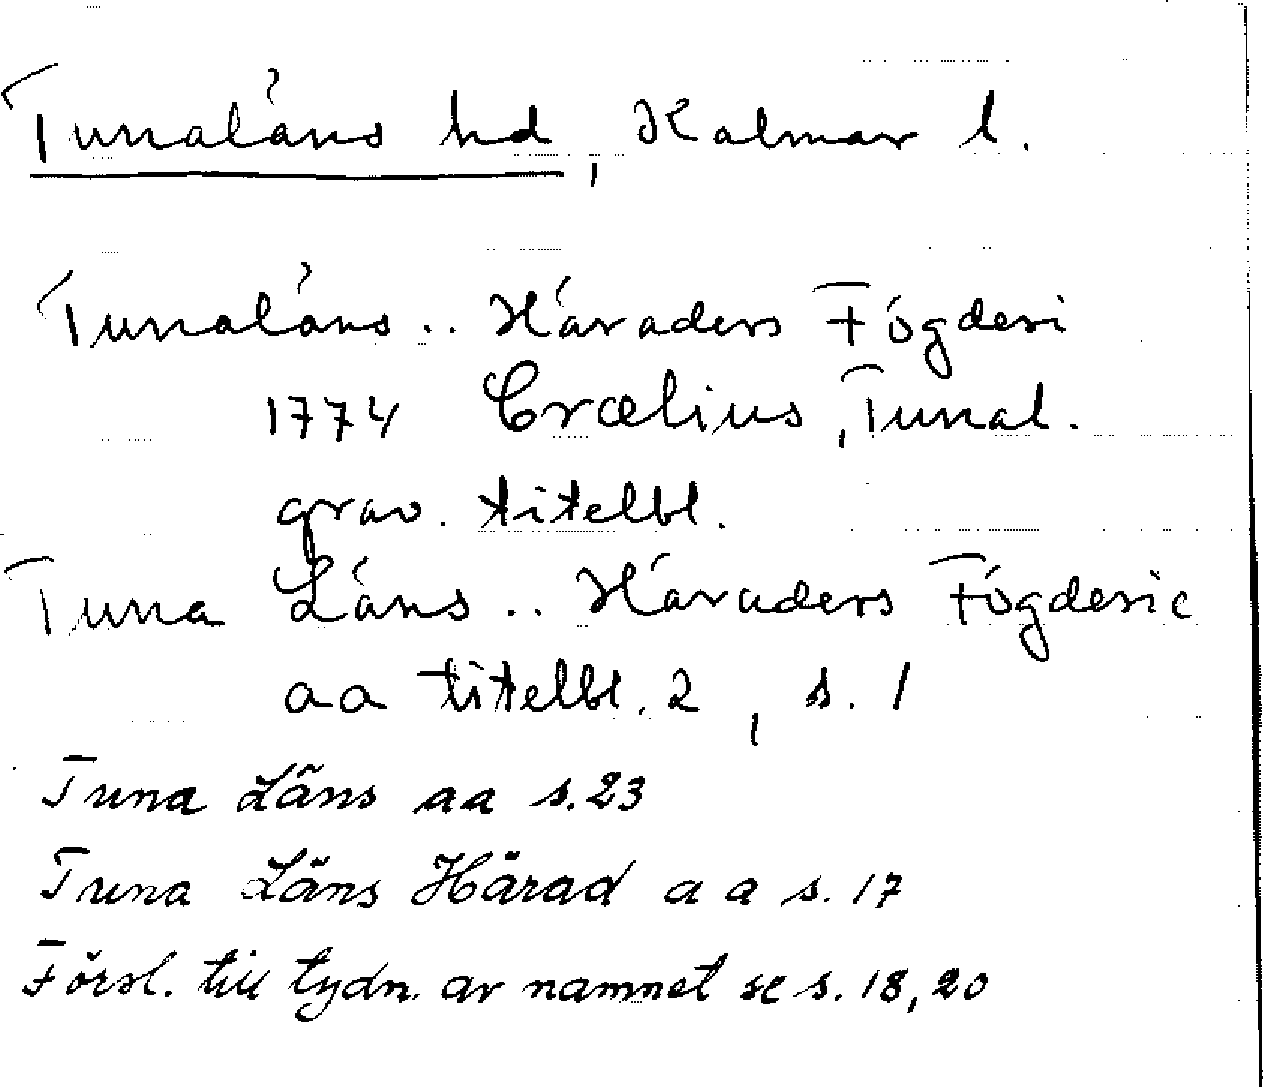 Tunaläns hd, Kalmar l.
Tunaläns .. Häraders Fögderi
1774 Crælius, Tunal.
grav. titelbl.
Tuna Läns .. Häraders Fögderie
aa titelbl. 2, s. 1
Tuna Läns aa s. 23
Tuna Läns Härad aa s. 17
Försl. till tydn. av namnet se s. 18, 20